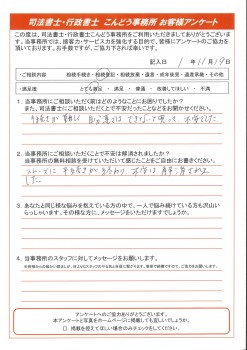 司法書士・行政書士 こんどう事務所 お客様アンケート
この度は、司法書士・行政書士 こんどう事務所をご利用いただきましてありがとうございます。
当事務所では、接客力・サービス力を強化する目的で、皆様にアンケートのご協力を
頂いております。お手数ですが、ご協力下されば幸いです。
記入日 1年11月19日
・ご相談内容 相続手続き・相続登記・相続放棄・遺言・成年後見・遺言承継・その他
・満足度 とても満足 ・ 満足 ・ 普通 ・ 改善してほしい ・ 不満
1. 当事務所にご相談いただく前はどのようなことにお困りでしたか?
また、当事務所にご相談いただくにあたって不安だったことなどをお書かせください。
手続きが難しく
不安でした
2. 当事務所にご相談いただいたことで不安は解消されましたか?
当事務所の無料相談を受けていただいて感じたことをご自由にお書きください。
スムーズに手続きが終わり 不安は
した
3. あなたと同じ様な悩みを抱えている方の中で、一人で悩み続けている方も沢山い
らっしゃいます。その様な方に、メッセージをいただけますでしょうか。
4. 当事務所のスタッフに対してメッセージをお願いします。
アンケートへのご協力ありがとうございます。
本アンケートと写真をホームページに掲載しても宜しいでしょうか。
□ 掲載を控えてほしい場合のみチェックをしてください。